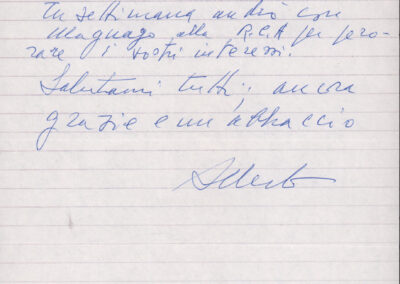 In settimana andrò con
Magnago alla R.C.A per pero-
rare i vostri interessi.
Salutami tutti; ancora
grazie e un abbraccio